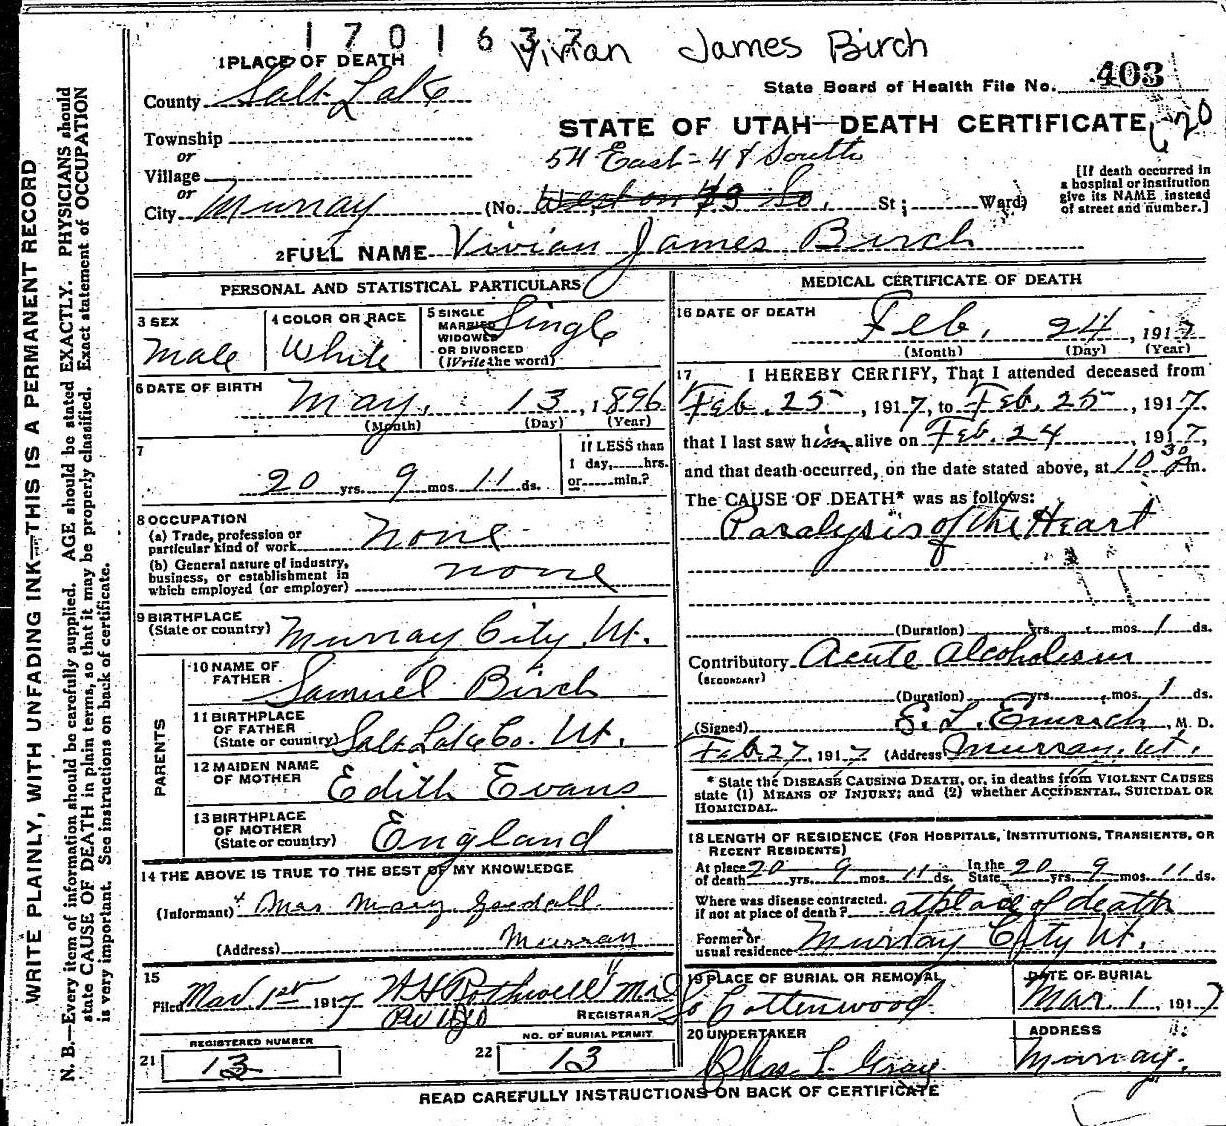 1701637
Vivian James Birch
1 PLACE OF DEATH
State Board of Health File No. 403
County Salt Lake
STATE OF UTAH—DEATH CERTIFICATE
Township
or
Village
or
City Murray
54 East - 48 South
(No. West on 43 So. St; Ward)
[If death occurred in
a hospital or institution
give its NAME instead
of street and number.]
2 FULL NAME Vivian James Birch
PERSONAL AND STATISTICAL PARTICULARS
3 SEX
Male
4 COLOR OR RACE
White
5 SINGLE
MARRIED
WIDOWED
OR DIVORCED
(Write the word)
Single
6 DATE OF BIRTH
May, 13, 1896
(Month) (Day) (Year)
7
20 yrs. 9 mos. 11 ds.
If LESS than
1 day, hrs.
or min.?
8 OCCUPATION
(a) Trade, profession or
particular kind of work none
(b) General nature of industry,
business, or establishment in
which employed (or employer) none
9 BIRTHPLACE
(State or country) Murray City, Ut.
PARENTS
10 NAME OF
FATHER Samuel Birch
11 BIRTHPLACE
OF FATHER
(State or country) Salt Lake Co. Ut.
12 MAIDEN NAME
OF MOTHER Edith Evans
13 BIRTHPLACE
OF MOTHER
(State or country) England
14 THE ABOVE IS TRUE TO THE BEST OF MY KNOWLEDGE
(Informant) Mrs Mary Goodall
(Address) Murray
15
Filed Mar 1st 1917 Rothwell M.D.
REGISTRAR
REGISTERED NUMBER
21 13
NO. OF BURIAL PERMIT
22 13
MEDICAL CERTIFICATE OF DEATH
16 DATE OF DEATH
Feb. 24, 1917
(Month) (Day) (Year)
17 I HEREBY CERTIFY, That I attended deceased from
Feb. 25, 1917, to Feb. 25, 1917.
that I last saw him alive on Feb. 24, 1917,
and that death occurred, on the date stated above, at 10 30 Am.
The CAUSE OF DEATH* was as follows:
Paralysis of the Heart
(Duration) yrs. mos. 1 ds.
Contributory Acute Alcoholism
(SECONDARY)
(Duration) yrs. mos. 1 ds.
(Signed) S. L. , M. D.
Feb 27, 1917 (Address) Murray, Ut.
* State the DISEASE CAUSING DEATH, or, in deaths from VIOLENT CAUSES
state (1) MEANS OF INJURY; and (2) whether ACCIDENTAL, SUICIDAL OR
HOMICIDAL.
18 LENGTH OF RESIDENCE (FOR HOSPITALS, INSTITUTIONS, TRANSIENTS, OR
RECENT RESIDENTS)
At place
of death 20 yrs. 9 mos. 11 ds. In the
State 20 yrs. 9 mos. 11 ds.
Where was disease contracted,
if not at place of death? at place of death
Former or
usual residence Murray City Ut.
19 PLACE OF BURIAL OR REMOVAL
So Cottonwood
DATE OF BURIAL
Mar. 1, 1917
20 UNDERTAKER
Chas. L. Gray
ADDRESS
Murray.
READ CAREFULLY INSTRUCTIONS ON BACK OF CERTIFICATE
WRITE PLAINLY, WITH UNFADING INK—THIS IS A PERMANENT RECORD
N. B.—Every item of information should be carefully supplied. AGE should be stated EXACTLY. PHYSICIANS should
state CAUSE OF DEATH in plain terms, so that it may be properly classified. Exact statement of OCCUPATION
is very important. See instructions on back of certificate.